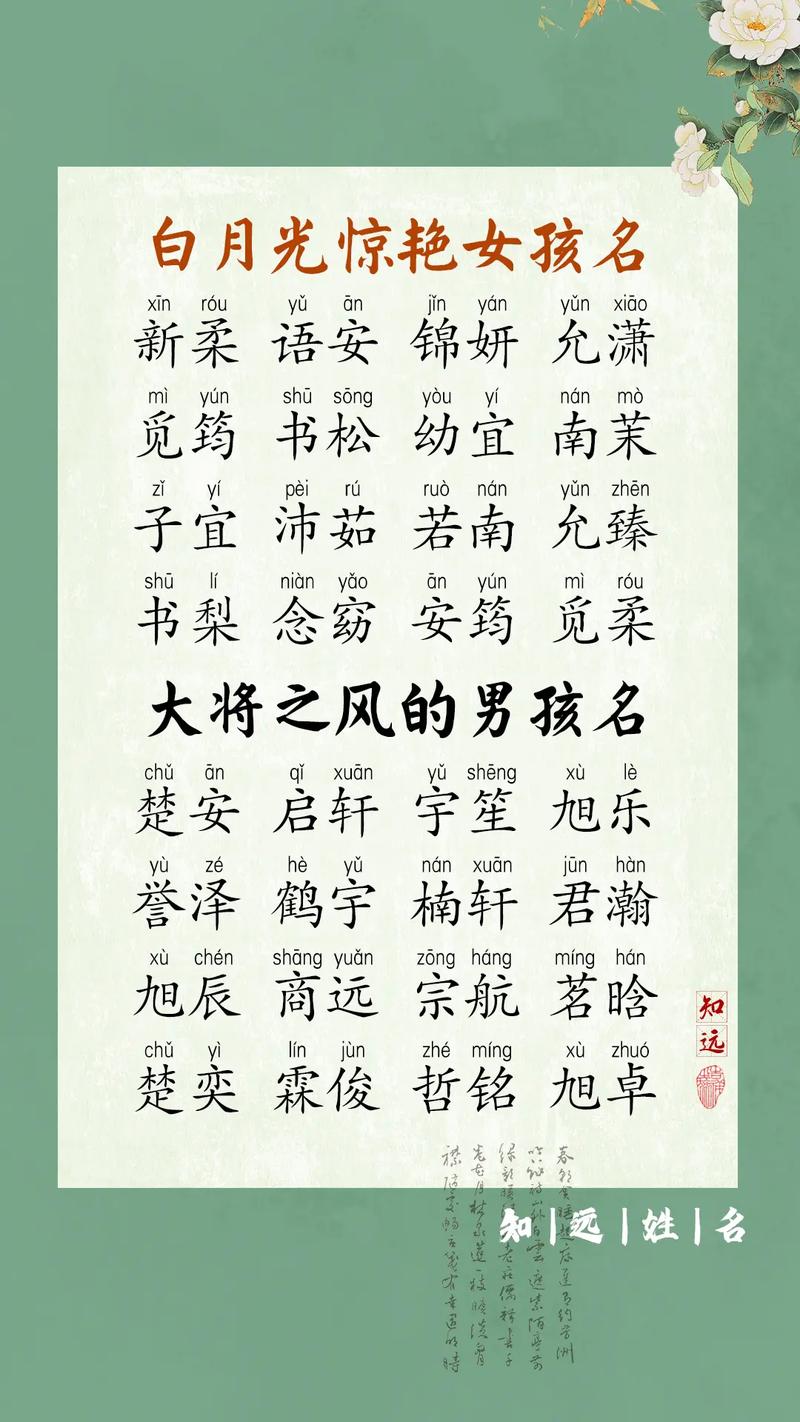 白月光惊艳女孩名
xīn róu yǔ ān jǐn yán yǔn xiāo
新柔 语安 锦妍 允潇
mì yún shū sōng yòu yí nán mò
觅筠 书松 幼宜 南茉
zǐ yí pèi rú ruò nán yǔn zhēn
子宜 沛茹 若南 允臻
shū lí niàn yǎo ān yún mì róu
书梨 念窈 安筠 觅柔
大将之风的男孩名
chǔ ān qǐ xuān yǔ shēng xù lè
楚安 启轩 宇笙 旭乐
yù zé hè yǔ nán xuān jūn hàn
誉泽 鹤宇 楠轩 君瀚
xù chén shāng yuǎn zōng háng míng hán
旭辰 商远 宗航 茗晗
chǔ yì lín jùn zhé míng xù zhuó
楚奕 霖俊 哲铭 旭卓
知远
知|远|姓|名